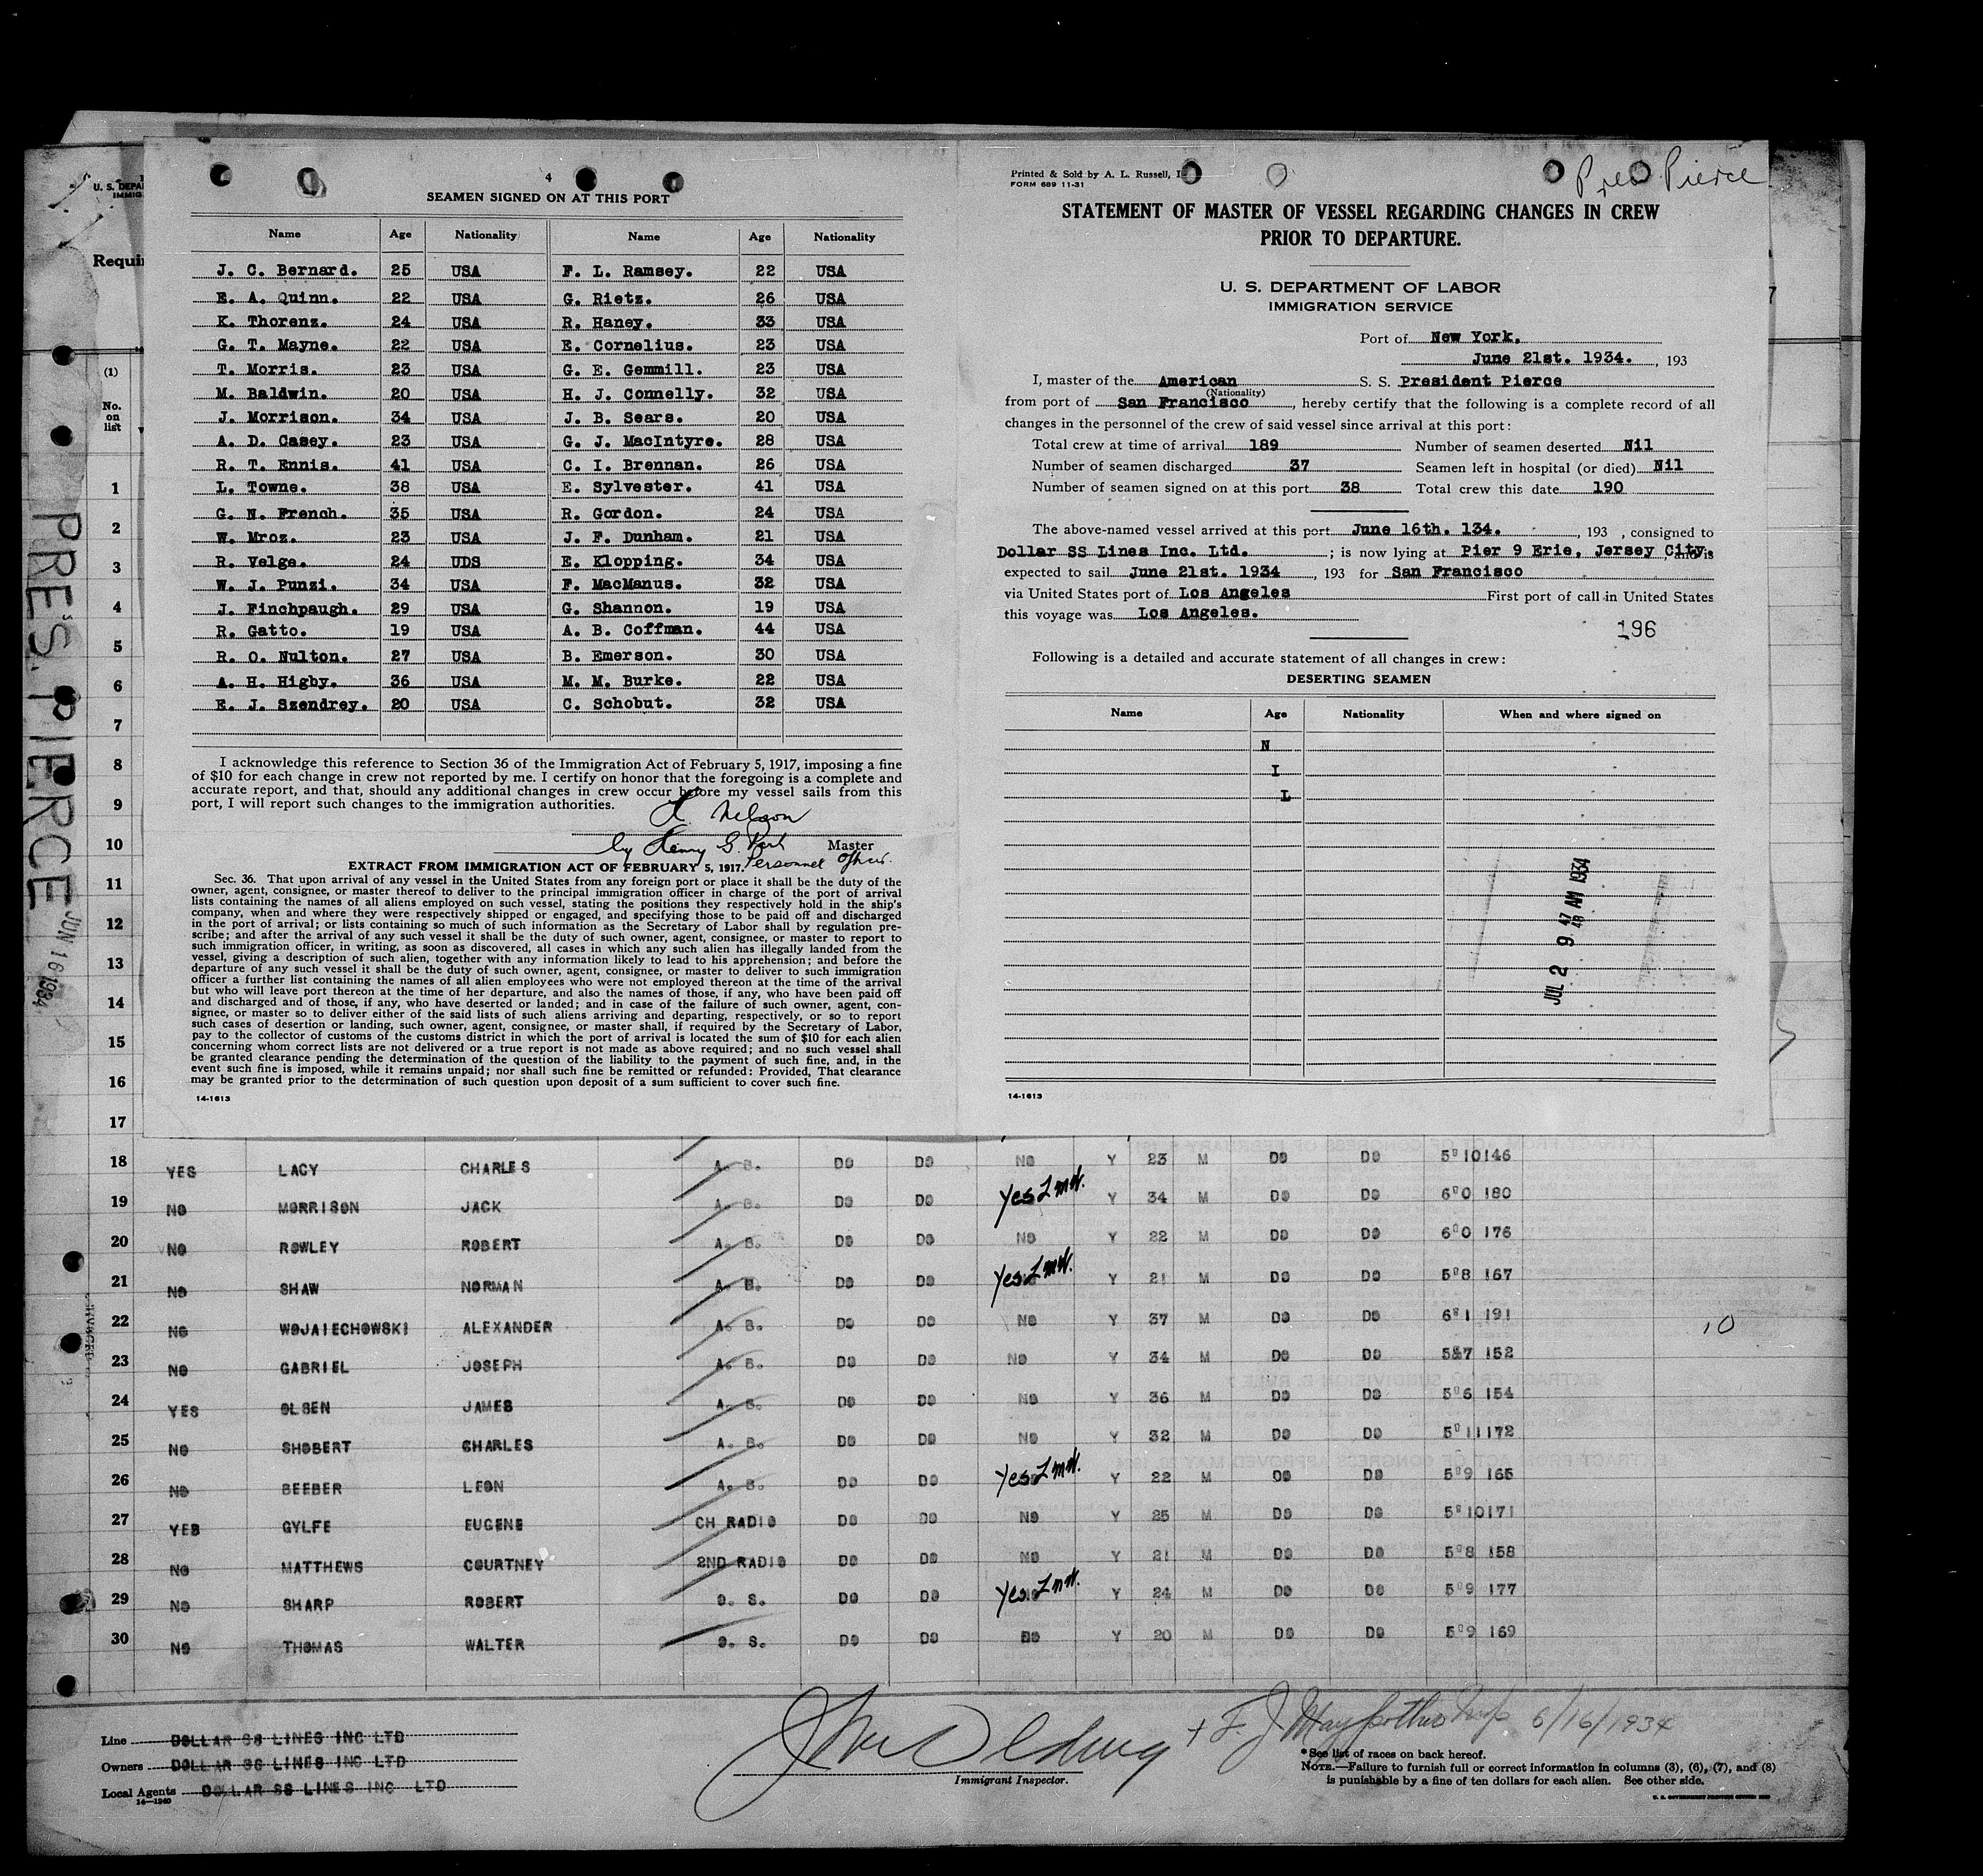 4
SEAMEN SIGNED ON AT THIS PORT
Name Age Nationality Name Age Nationality
J. C. Bernard. 25 USA F. L. Ramsey. 22 USA
E. A. Quinn. 22 USA G. Rietz. 26 USA
K. Thorenz. 24 USA R. Haney. 33 USA
G. T. Mayne. 22 USA E. Cornelius. 23 USA
T. Morris. 23 USA G. E. Gemmill. 23 USA
M. Baldwin. 20 USA H. J. Connelly. 32 USA
J. Morrison. 34 USA J. B. Sears. 20 USA
A. D. Casey. 23 USA G. J. MacIntyre. 28 USA
R. T. Ennis. 41 USA C. I. Brennan. 26 USA
L. Towne. 38 USA E. Sylvester. 41 USA
G. N. French. 35 USA R. Gordon. 24 USA
W. Mroz. 23 USA J. F. Dunham. 21 USA
R. Velge. 24 UDS E. Klopping. 34 USA
W. J. Punzi. 34 USA F. MacManus. 32 USA
J. Finchpaugh. 29 USA G. Shannon. 19 USA
R. Gatto. 19 USA A. B. Coffman. 44 USA
R. O. Nulton. 27 USA B. Emerson. 30 USA
A. H. Higby. 36 USA M. M. Burke. 22 USA
E. J. Szendrey. 20 USA C. Schobut. 32 USA
I acknowledge this reference to Section 36 of the Immigration Act of February 5, 1917, imposing a fine
of $10 for each change in crew not reported by me. I certify on honor that the foregoing is a complete and
accurate report, and that, should any additional changes in crew occur before my vessel sails from this
port, I will report such changes to the immigration authorities.
K Nelson
by Henry G. Park Master
Personnel Officer.
EXTRACT FROM IMMIGRATION ACT OF FEBRUARY 5, 1917.
Sec. 36. That upon arrival of any vessel in the United States from any foreign port or place it shall be the duty of the
owner, agent, consignee, or master thereof to deliver to the principal immigration officer in charge of the port of arrival
lists containing the names of all aliens employed on such vessel, stating the positions they respectively hold in the ship's
company, when and where they were respectively shipped or engaged, and specifying those to be paid off and discharged
in the port of arrival; or lists containing so much of such information as the Secretary of Labor shall by regulation pre-
scribe; and after the arrival of any such vessel it shall be the duty of such owner, agent, consignee, or master to report to
such immigration officer, in writing, as soon as discovered, all cases in which any such alien has illegally landed from the
vessel, giving a description of such alien, together with any information likely to lead to his apprehension; and before the
departure of any such vessel it shall be the duty of such owner, agent, consignee, or master to deliver to such immigration
officer a further list containing the names of all alien employees who were not employed thereon at the time of the arrival
but who will leave port thereon at the time of her departure, and also the names of those, if any, who have been paid off
and discharged and of those, if any, who have deserted or landed; and in case of the failure of such owner, agent, con-
signee, or master so to deliver either of the said lists of such aliens arriving and departing, respectively, or so to report
such cases of desertion or landing, such owner, agent, consignee, or master shall, if required by the Secretary of Labor,
pay to the collector of customs of the customs district in which the port of arrival is located the sum of $10 for each alien
concerning whom correct lists are not delivered or a true report is not made as above required; and no such vessel shall
be granted clearance pending the determination of the question of the liability to the payment of such fine, and, in the
event such fine is imposed, while it remains unpaid; nor shall such fine be remitted or refunded: Provided, That clearance
may be granted prior to the determination of such question upon deposit of a sum sufficient to cover such fine.
14-1613
Printed & Sold by A. L. Russell, I
FORM 689 11-31
Pres Pierce
STATEMENT OF MASTER OF VESSEL REGARDING CHANGES IN CREW
PRIOR TO DEPARTURE.
U. S. DEPARTMENT OF LABOR
IMMIGRATION SERVICE
Port of New York.
June 21st. 1934. , 193
I, master of the American S. S. President Pierce
(Nationality)
from port of San Francisco , hereby certify that the following is a complete record of all
changes in the personnel of the crew of said vessel since arrival at this port:
Total crew at time of arrival 189 Number of seamen deserted Nil
Number of seamen discharged 37 Seamen left in hospital (or died) Nil
Number of seamen signed on at this port 38 Total crew this date 190
The above-named vessel arrived at this port June 16th. 134. , 193 , consigned to
Dollar SS Lines Inc. Ltd. ; is now lying at Pier 9 Erie, Jersey City, and is
expected to sail June 21st. 1934 , 193 for San Francisco
via United States port of Los Angeles First port of call in United States
this voyage was Los Angeles.
196
Following is a detailed and accurate statement of all changes in crew:
DESERTING SEAMEN
Name Age Nationality When and where signed on
N
I
L
JUL 2 9 47 AM 1934
14-1613
U. S. DEPA
IMMIG
Requi
(1)
No.
on
list
PRES. PIERCE
JUN 16 1934
1
2
3
4
5
6
7
8
9
10
11
12
13
14
15
16
17
18 YES LACY CHARLES A. B. DO DO NO Y 23 M DO DO 5 10 146
19 NO MORRISON JACK A. B. DO DO Yes Y 34 M DO DO 6 0 180
20 NO ROWLEY ROBERT A. B. DO DO NO Y 22 M DO DO 6 0 176
21 NO SHAW NORMAN A. B. DO DO Yes Y 21 M DO DO 5 8 167
22 NO WOJAIECHOWSKI ALEXANDER A. B. DO DO NO Y 37 M DO DO 6 1 191
23 NO GABRIEL JOSEPH A. B. DO DO NO Y 34 M DO DO 5 7 152
24 YES OLSEN JAMES A. B. DO DO NO Y 36 M DO DO 5 6 154
25 NO SHOBERT CHARLES A. B. DO DO NO Y 32 M DO DO 5 11 172
26 NO BEEBER LEON A. B. DO DO Yes Y 22 M DO DO 5 9 165
27 YES GYLFE EUGENE CH RADIO DO DO NO Y 25 M DO DO 5 10 171
28 NO MATTHEWS COURTNEY 2ND RADIO DO DO NO Y 21 M DO DO 5 8 158
29 NO SHARP ROBERT O. S. DO DO Yes Y 24 M DO DO 5 9 177
30 NO THOMAS WALTER O. S. DO DO DO Y 20 M DO DO 5 9 169
Line DOLLAR SS LINES INC LTD
Owners DOLLAR SS LINES INC LTD
Local Agents DOLLAR SS LINES INC LTD
14-1240
6/16/1934
Immigrant Inspector.
*See list of races on back hereof.
NOTE.—Failure to furnish full or correct information in columns (3), (6), (7), and (8)
is punishable by a fine of ten dollars for each alien. See other side.